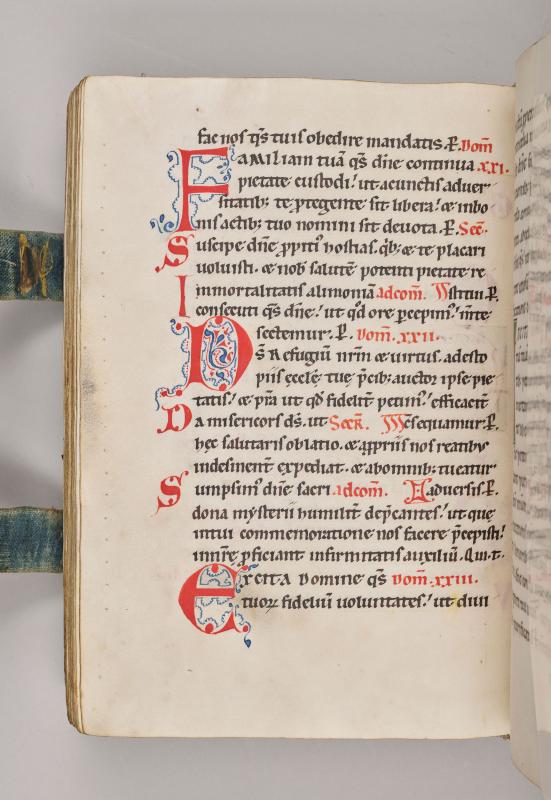 fac nos q̄s tuis obedire mandatis. P̄. Dom̄
Familiam tuā q̄s dn̄e continua .xxi.
pietate custodi! ut a cunctis aduer
sitatib; te ꝑtegente sit libera! & in bo
nis actib; tuo nomini sit deuota. P̄. Sec̄.
Suscipe dn̄e ꝓpiti' hostias. qb; & te placari
uoluisti. & nob̄ salutē potenti pietate re
Inmortalitatis alimoniā adcom̄.
consecuti q̄s dn̄e! ut qd̄ ore ꝑcepim'! m̄te
sectemur. P̄. Dom̄. xxii.
Ds̄ Refugiū nr̄m & uirtus. adesto
piis eccl̄e tuę p̄cib; auctor ipse pie
tatis! & p̄ra ut qd̄ fidelit̄ petim'! efficacit̄
Da misericors ds̄. ut Sec̄R. c̄sequamur. P̄.
hęc salutaris oblatio. & a ꝓpriis nos reatib;
indesinent̄ expediat. & ab omnib; tueatur
Sumpsim' dn̄e sacri adcom̄. aduersis. P̄.
dona mysterii humilit̄ dep̄cantes! ut quę
in tui commemoratione nos facere p̄cepisti!
in nr̄ę ꝓficiant infirmitatis auxiliū. Qui. t.
Excita Domine q̄s Dom̄. xxiii.
tuoꝝ fideliū uoluntates! ut diui